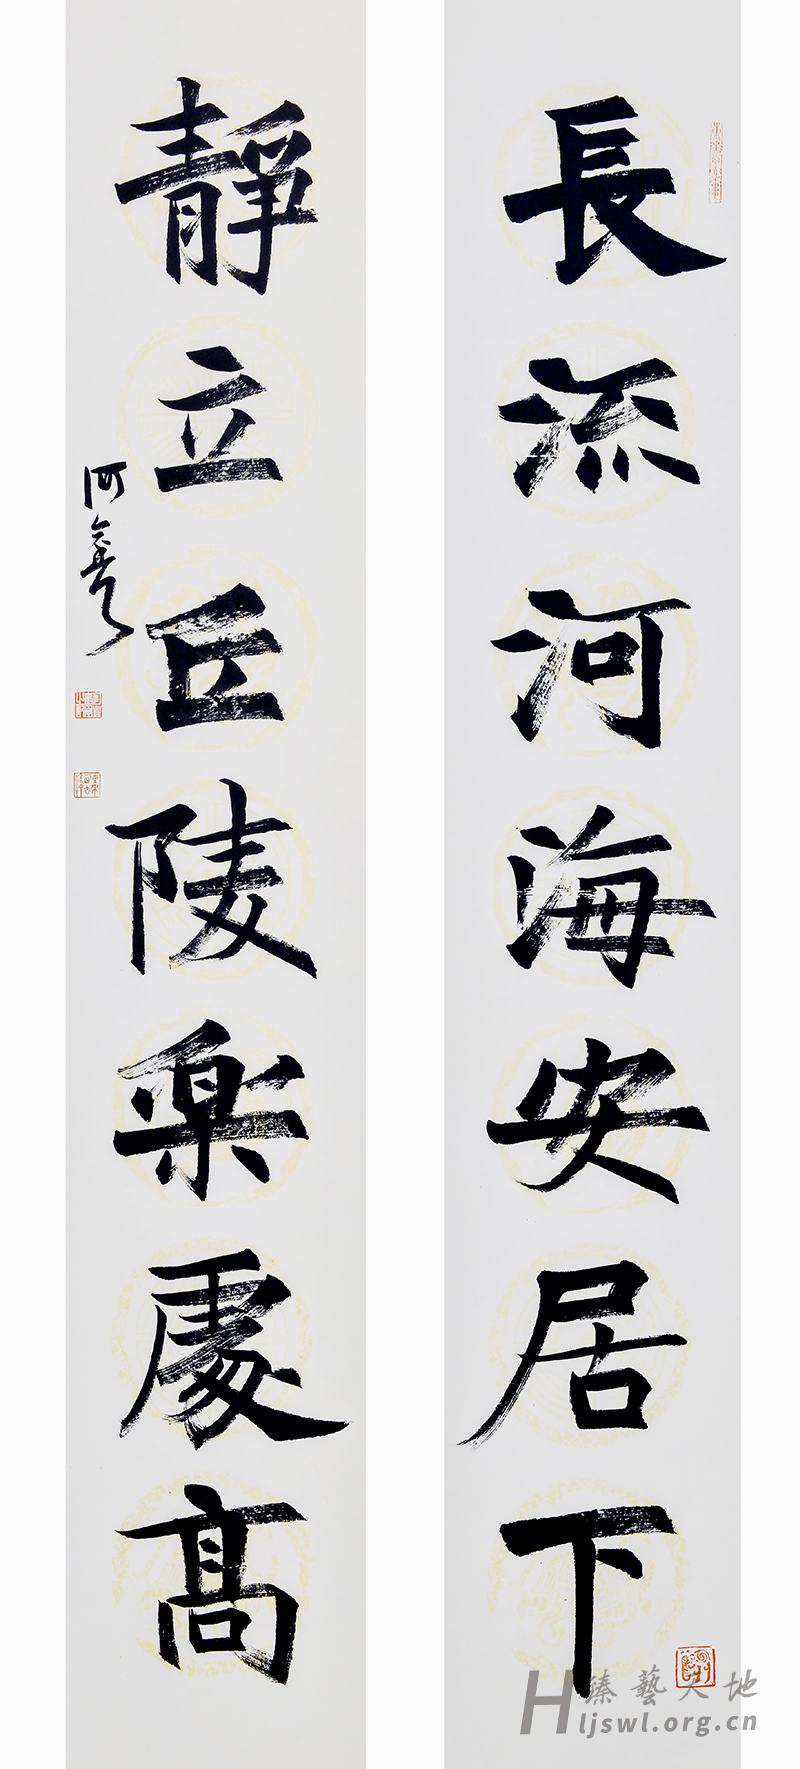 長流河海安居下
靜立丘陵樂處高
臻藝天地
Hljswl.org.cn